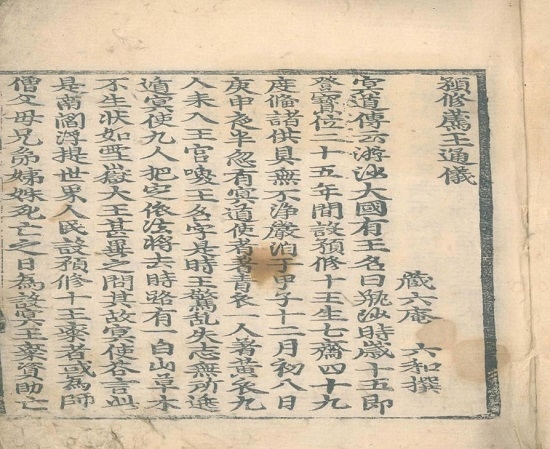 預修薦王通儀
藏六庵 六和撰
冥道傳云游沙大國有王名曰甁沙時歲十五即
登寶位二十五年間設預修十王生七齋四十九
度備諸供具無不淨嚴洎于甲子十二月初八日
庚申夜半忽有冥道使者着青衣一人著黃衣九
人来入王宮喚王名字是時王驚乱失志無所逃
遁冥使九人把定依法將去時路有一白山草木
不生狀如雪嶽大王甚異之問其故冥使答言此
是南閻浮提世界人民設預修十王齋者或為師
僧父母兄弟姉妹死亡之日為設冥王齋資助亡